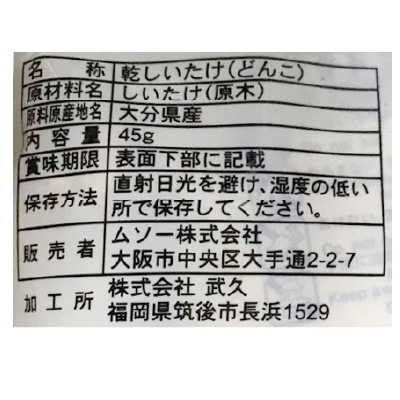 名称 乾しいたけ(どんこ)
原材料名 しいたけ(原木)
原料原産地名 大分県産
内容量 45g
賞味期限 表面下部に記載
保存方法 直射日光を避け、湿度の低い
所で保存してください。
販売者 ムソー株式会社
大阪市中央区大手通2-2-7
加工所 株式会社 武久
福岡県筑後市長浜1529